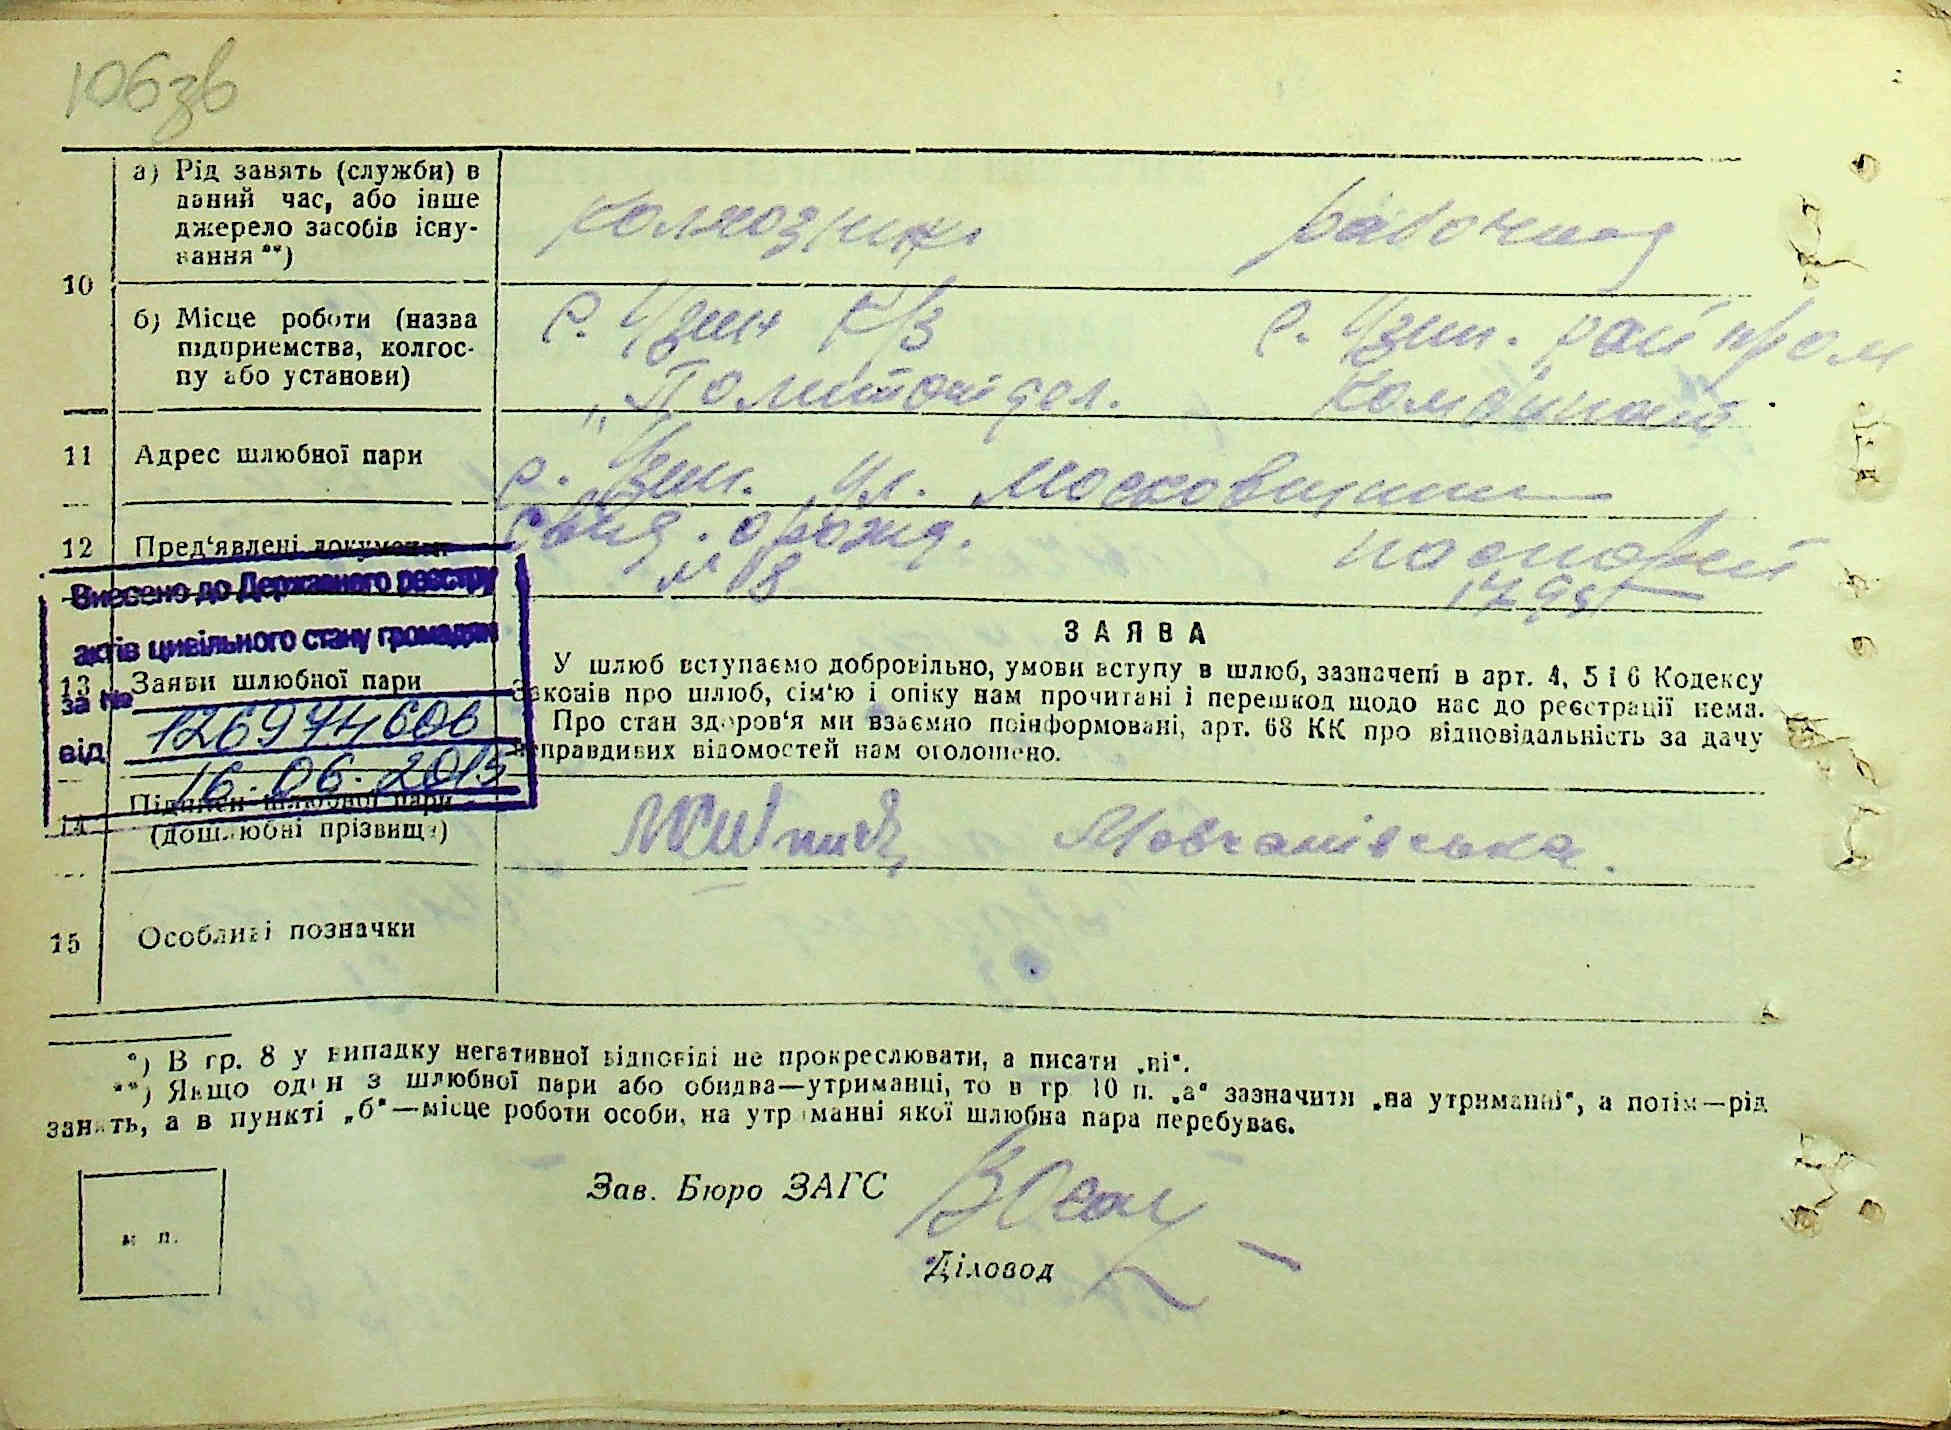 106зв
а) Рід занять (служби) в
даний час, або інше
джерело засобів існу-
вання **)
колхозник
рабочая
10
б) Місце роботи (назва
підприємства, колгос-
пу або установи)
с. Узин к/з
с. Узин. райпром
комбинат
11
Адрес шлюбної пари
с. Узин. ул.
12
Пред'явлені документи
Свид. о рожд.
№ 18
Внесено до Державного реєстру
актів цивільного стану громадян
за №
126974606
від
16.06.2015
ЗАЯВА
13
Заяви шлюбної пари
У шлюб вступаємо добровільно, умови вступу в шлюб, зазначені в арт. 4, 5 і 6 Кодексу
Законів про шлюб, сім'ю і опіку нам прочитані і перешкод щодо нас до реєстрації нема.
Про стан здоров'я ми взаємно поінформовані, арт. 68 КК про відповідальність за дачу
неправдивих відомостей нам оголошено.
14
Підписи шлюбної пари
(дошлюбні прізвища)
Мовчанівська.
15
Особливі позначки
*) В гр. 8 у випадку негативної відповіді не прокреслювати, а писати „ні“.
**) Якщо один з шлюбної пари або обидва—утриманці, то в гр 10 п. „а“ зазначити „на утриманні“, а потім—рід
занять, а в пункті „б“—місце роботи особи, на утриманні якої шлюбна пара перебуває.
Зав. Бюро ЗАГС
м п.
Діловод